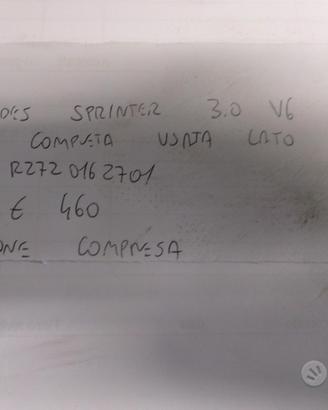 DES SPRINTER 3.0 V6
COMPLETA USATA LATO
R272 016 2701
€ 460
ONE COMPRESA